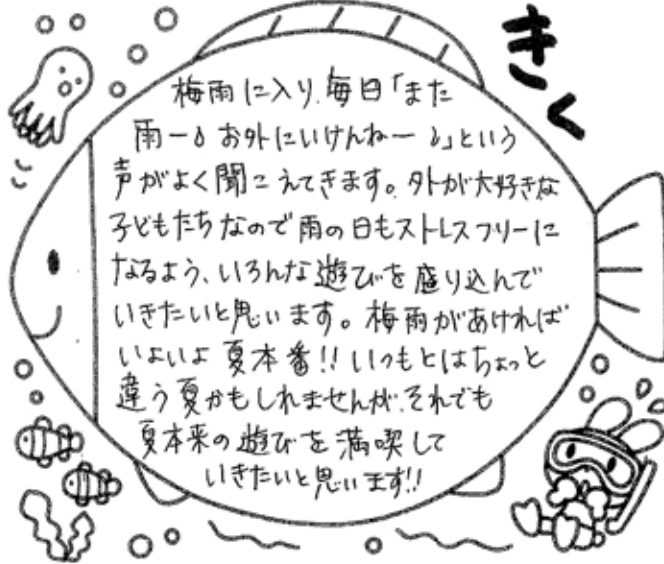 きく
梅雨に入り、毎日「また
雨ー💧お外にいけんねー💧」という
声がよく聞こえてきます。外が大好きな
子どもたちなので雨の日もストレスフリーに
なるよう、いろんな遊びを盛り込んで
いきたいと思います。梅雨があければ
いよいよ夏本番!!いつもとはちょっと
違う夏かもしれませんが、それでも
夏本来の遊びを満喫して
いきたいと思います!!